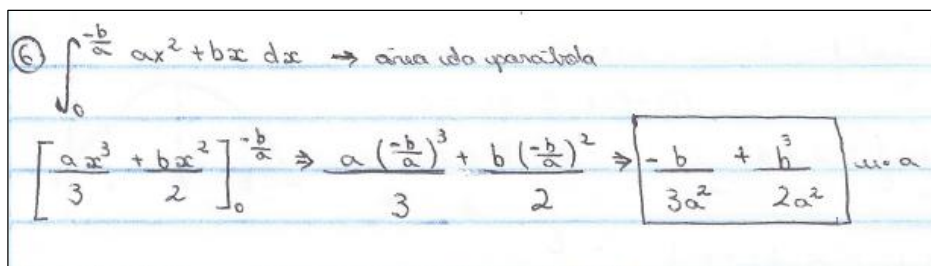 ⑥ ∫₀^(-b/a) ax² + bx dx → área da parábola
[ax³/3 + bx²/2]₀^(-b/a) ⇒ a(-b/a)³/3 + b(-b/a)²/2 ⇒ -b/3a² + b³/2a² u.a